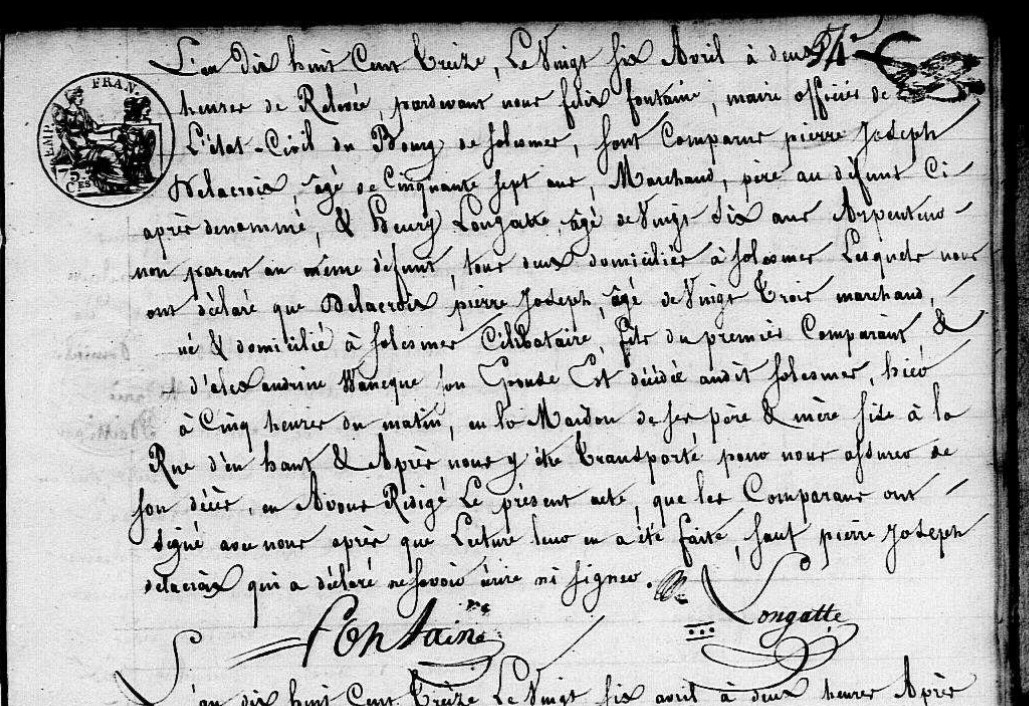 54e
L'an dix huit Cent treize, Le Vingt six Avril à deux
heures de Relevée, pardevant nous felix fontaine, maire officier de
L'état-Civil du Bourg de Solesmes, sont Comparus pierre Joseph
Delacroix, âgé de Cinquante sept ans, Marchand, père au défunt Ci
après denommé, & Henry Longatte, âgé de Vingt six ans Arpenteur
non parent au même défunt, tous deux domiciliés à Solesmes Lesquels nous
ont déclaré que Delacroix pierre Joseph, âgé de Vingt trois marchand,
né & domicilié à Solesmes Célibataire, fils du premier Comparant &
d'alexandrine Wanecque son Epouse Est décédé audit Solesmes, hier
à Cinq heures du matin, en la Maison de ses père & mère size à la
Rue d'en haut & Après nous y être transporté pour nous assurer de
son décès, en Avons Rédigé Le présent acte, que les Comparans ont
signé avec nous après que Lecture leur en a été faite, sauf pierre Joseph
delacroix qui a déclaré ne savoir écrire ni signer.
fontaine
Longatte
L'an dix huit Cent treize Le Vingt six avril à deux heures Après
EMP. FRAN.
75
CES